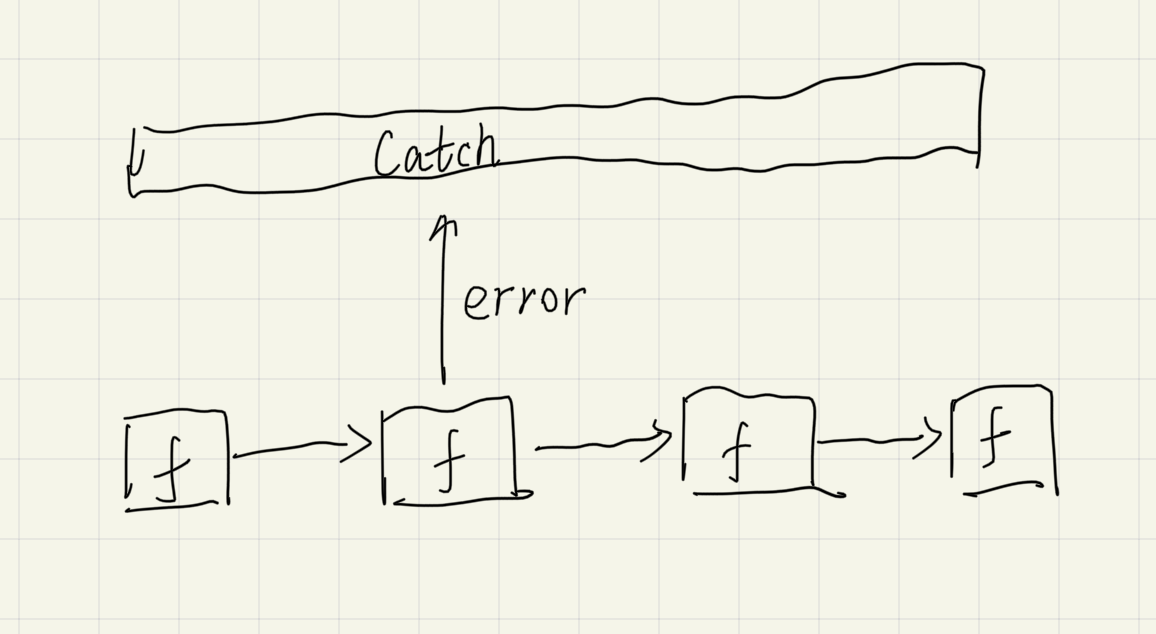 Catch
error
f
f
f
f